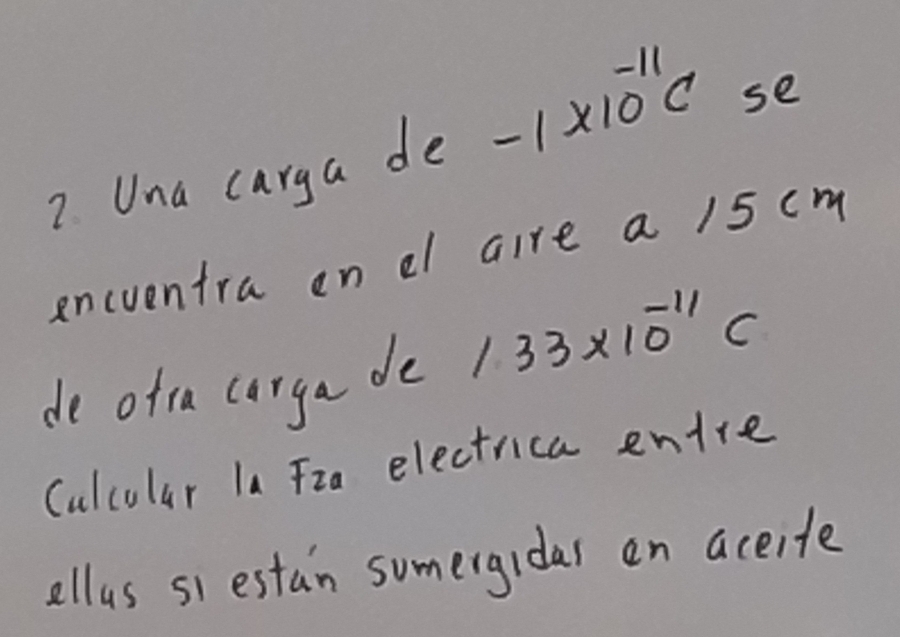 2. Una carga de -1x10⁻¹¹C se
encuentra en el aire a 15 cm
de otra carga de 1.33x10⁻¹¹ C
Calcular la Fza electrica entre
ellas si están sumergidas en aceite